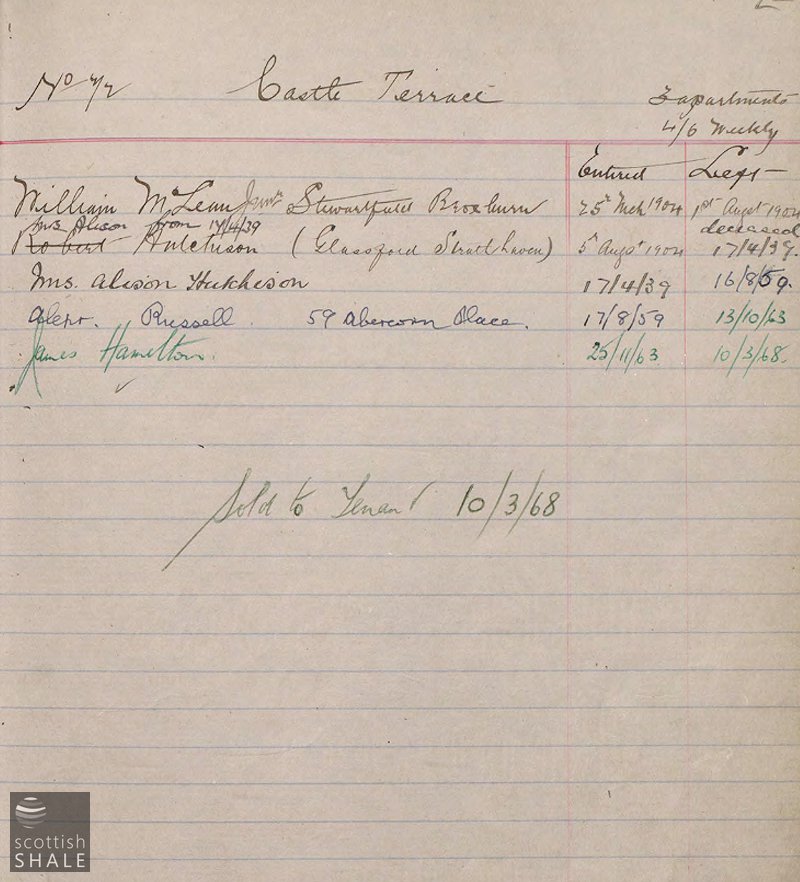 No 42 Castle Terrace 3 apartments
4/6 Weekly
Entered Left
William McLean Junr Stewartfield Broxburn 25th Mch 1904 1st Augst 1904
Mrs Alison from 17/4/39 deceased
Robert Hutchison (Glassford Strathaven) 5th Augst 1904 17/4/39.
Mrs. Alison Hutchison 17/4/39 16/8/59.
Alexr. Russell. 59 Abercorn Place. 17/8/59 13/10/63
James Hamilton. 25/11/63 10/3/68.
Sold to Tenant 10/3/68
scottish
SHALE